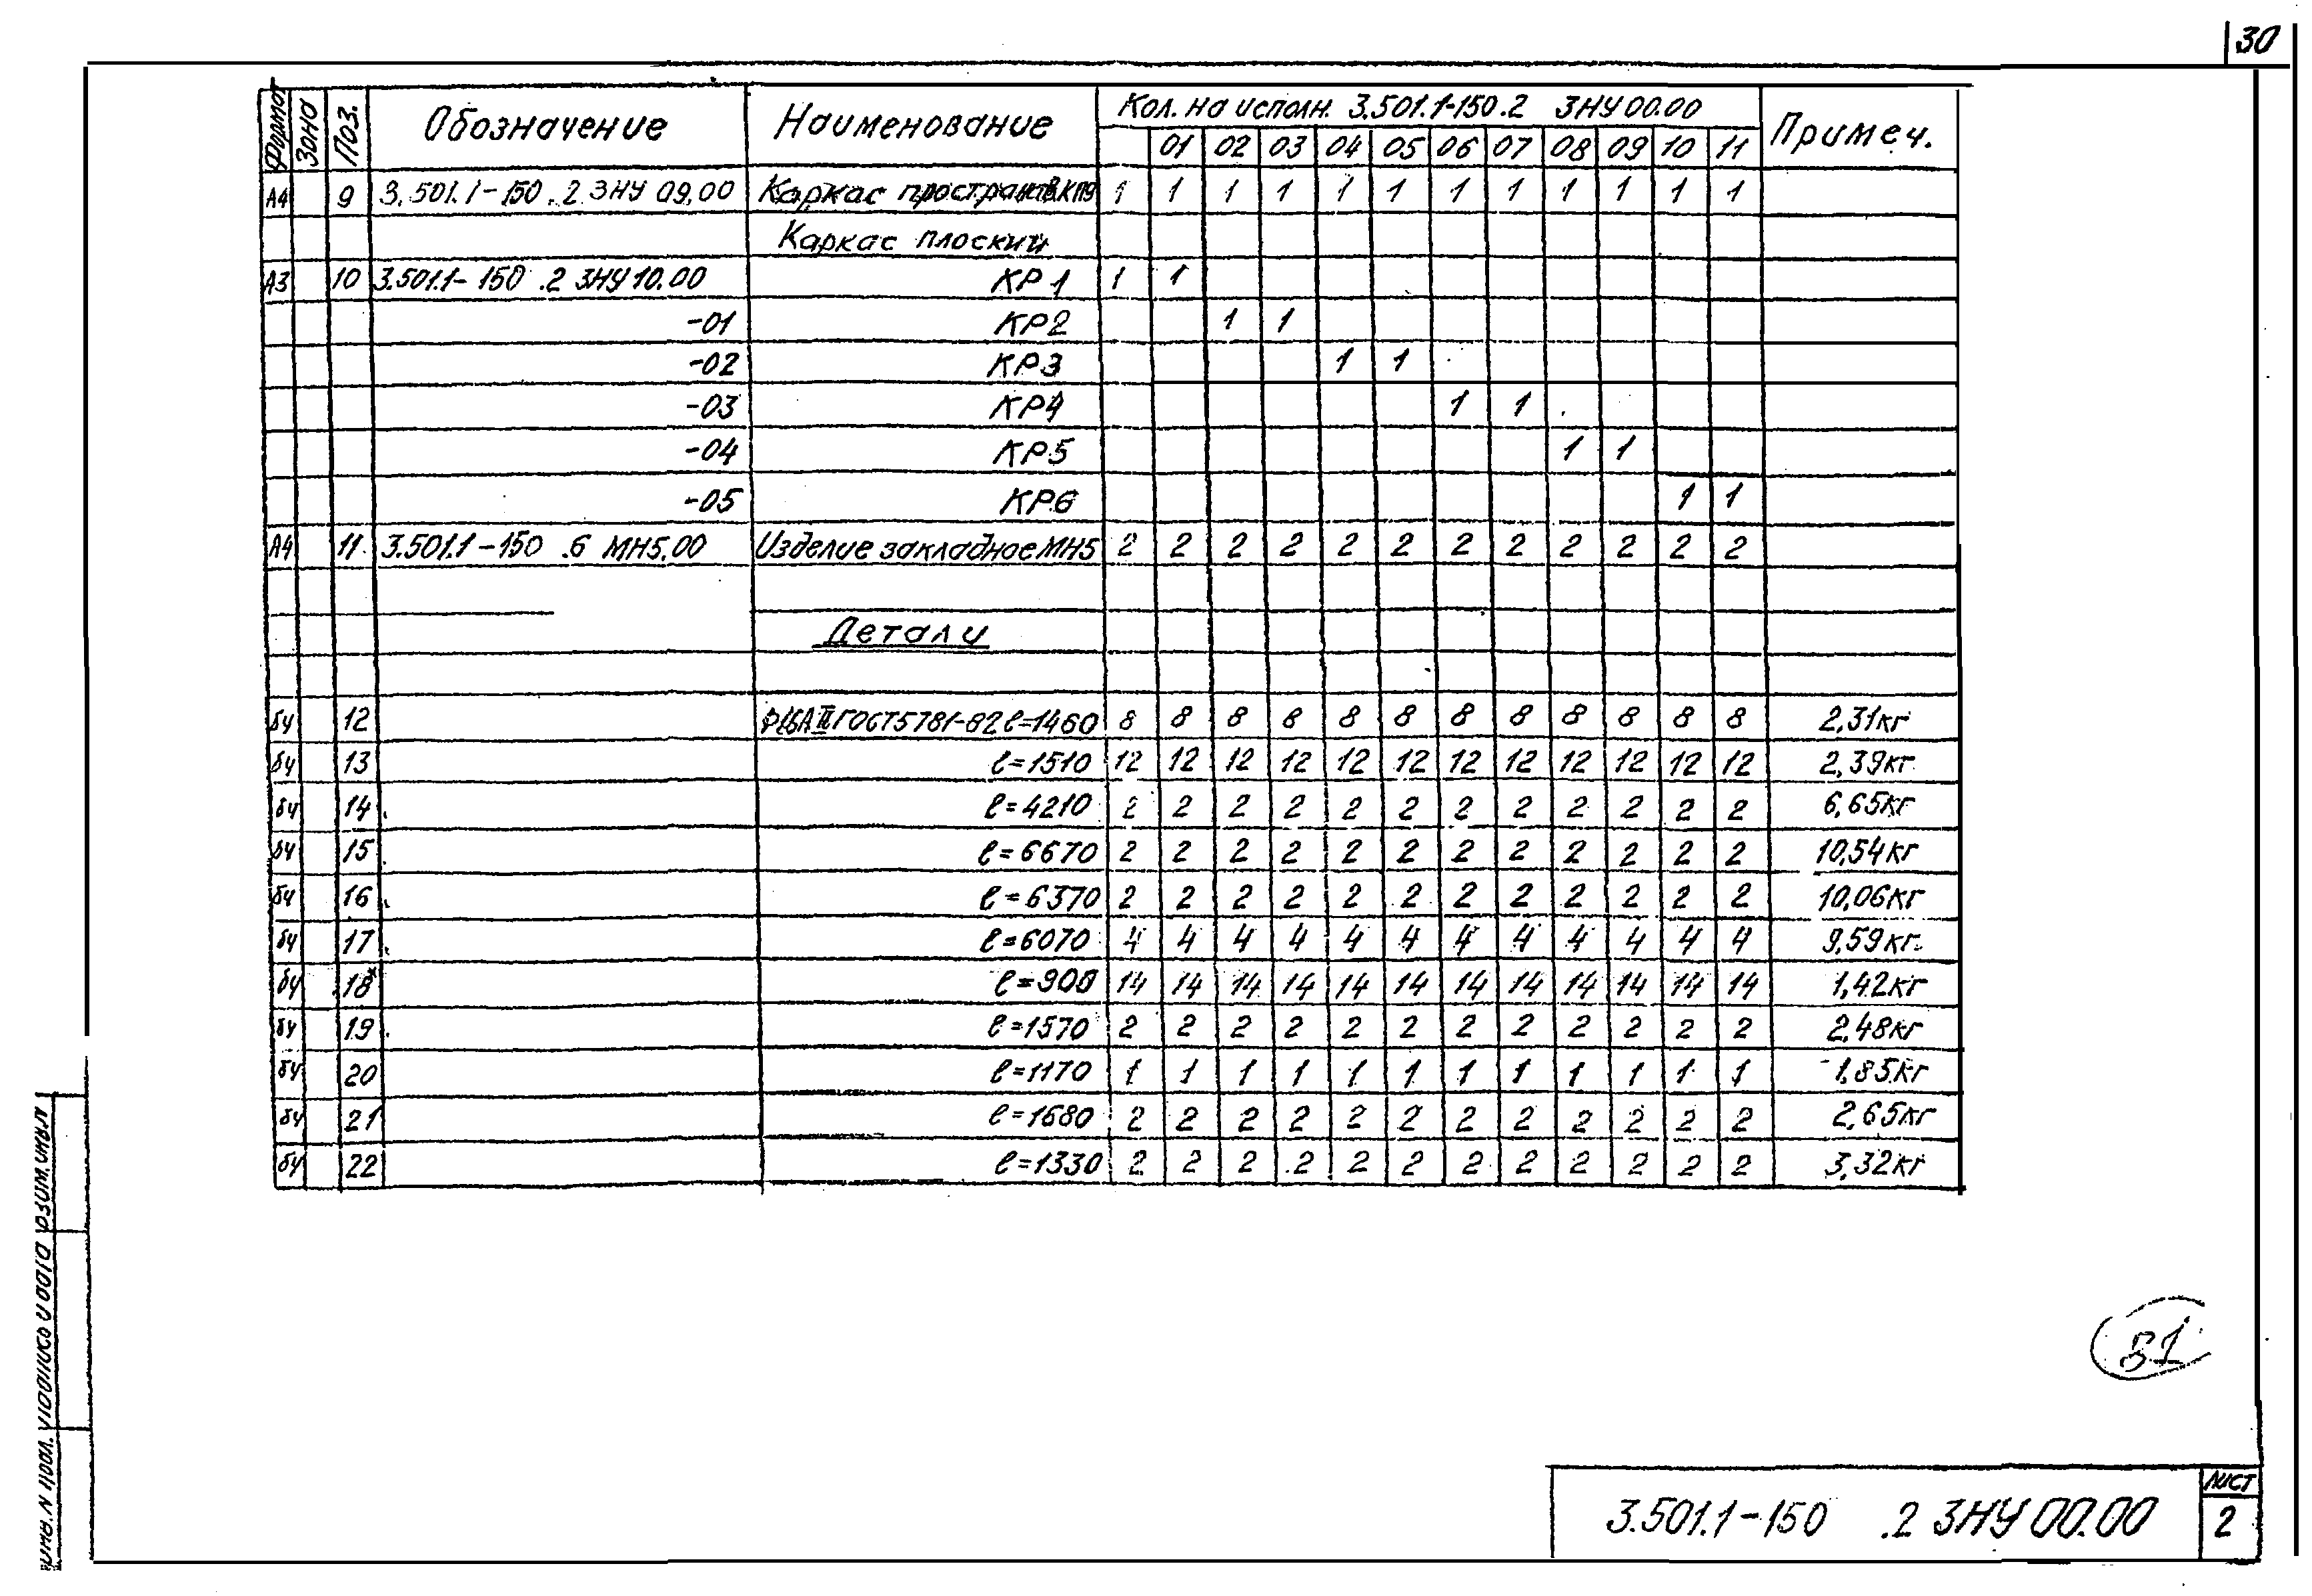 30
Формат Зона Поз. Обозначение Наименование Кол. на исполн. 3.501.1-150.2 ЗНУ 00.00 Примеч.
01 02 03 04 05 06 07 08 09 10 11
А4 9 3.501.1-150 .2 ЗНУ 09.00 Каркас пространств. КП9 1 1 1 1 1 1 1 1 1 1 1 1
Каркас плоский
А3 10 3.501.1-150 .2 ЗНУ 10.00 КР1 1 1
-01 КР2 1 1
-02 КР3 1 1
-03 КР4 1 1
-04 КР5 1 1
-05 КР6 1 1
А4 11 3.501.1-150 .6 МН5.00 Изделие закладное МН5 2 2 2 2 2 2 2 2 2 2 2 2
Детали
бч 12 ф16АIII ГОСТ5781-82 ℓ=1460 8 8 8 8 8 8 8 8 8 8 8 8 2,31кг
бч 13 ℓ=1510 12 12 12 12 12 12 12 12 12 12 12 12 2,39кг
бч 14 ℓ=4210 2 2 2 2 2 2 2 2 2 2 2 2 6,65кг
бч 15 ℓ=6670 2 2 2 2 2 2 2 2 2 2 2 2 10,54кг
бч 16 ℓ=6370 2 2 2 2 2 2 2 2 2 2 2 2 10,06кг
бч 17 ℓ=6070 4 4 4 4 4 4 4 4 4 4 4 4 9,59кг
бч 18* ℓ=900 14 14 14 14 14 14 14 14 14 14 14 14 1,42кг
бч 19 ℓ=1570 2 2 2 2 2 2 2 2 2 2 2 2 2,48кг
бч 20 ℓ=1170 1 1 1 1 1 1 1 1 1 1 1 1 1,85кг
бч 21 ℓ=1680 2 2 2 2 2 2 2 2 2 2 2 2 2,65кг
бч 22 ℓ=1330 2 2 2 2 2 2 2 2 2 2 2 2 3,32кг
31
Инв. N подл. Подпись и дата Взам. инв. N
3.501.1-150 .2 ЗНУ 00.00
Лист
2